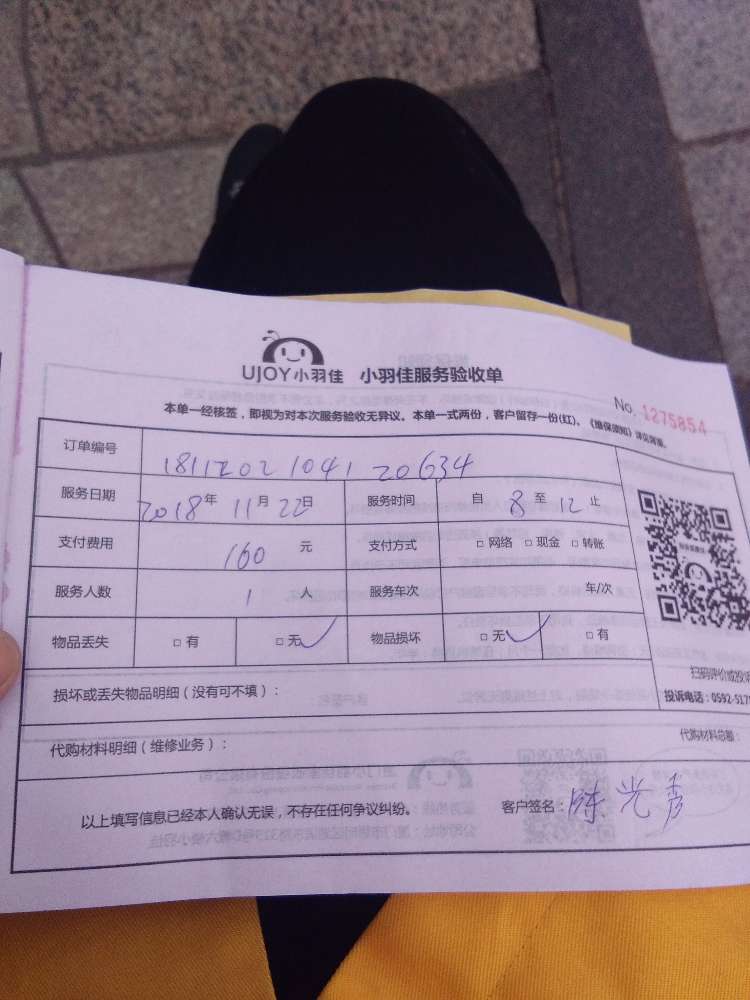 UJOY小羽佳 小羽佳服务验收单
No. 1275854
本单一经核签，即视为对本次服务验收无异议。本单一式两份，客户留存一份(红)。《维保须知》详见背面。
订单编号 18112021041 20634
服务日期 2018年 11月 22日 服务时间 自 8 至 12 止
支付费用 160 元 支付方式 □ 网络 □ 现金 □ 转账
服务人数 1 人 服务车次 车/次
物品丢失 □ 有 □ 无 ✓ 物品损坏 □ 无 ✓ □ 有
扫码评价或投诉
投诉电话：0592-517
损坏或丢失物品明细（没有可不填）：
代购材料明细（维修业务）： 代购材料总额：
以上填写信息已经本人确认无误，不存在任何争议纠纷。 客户签名：陈光秀